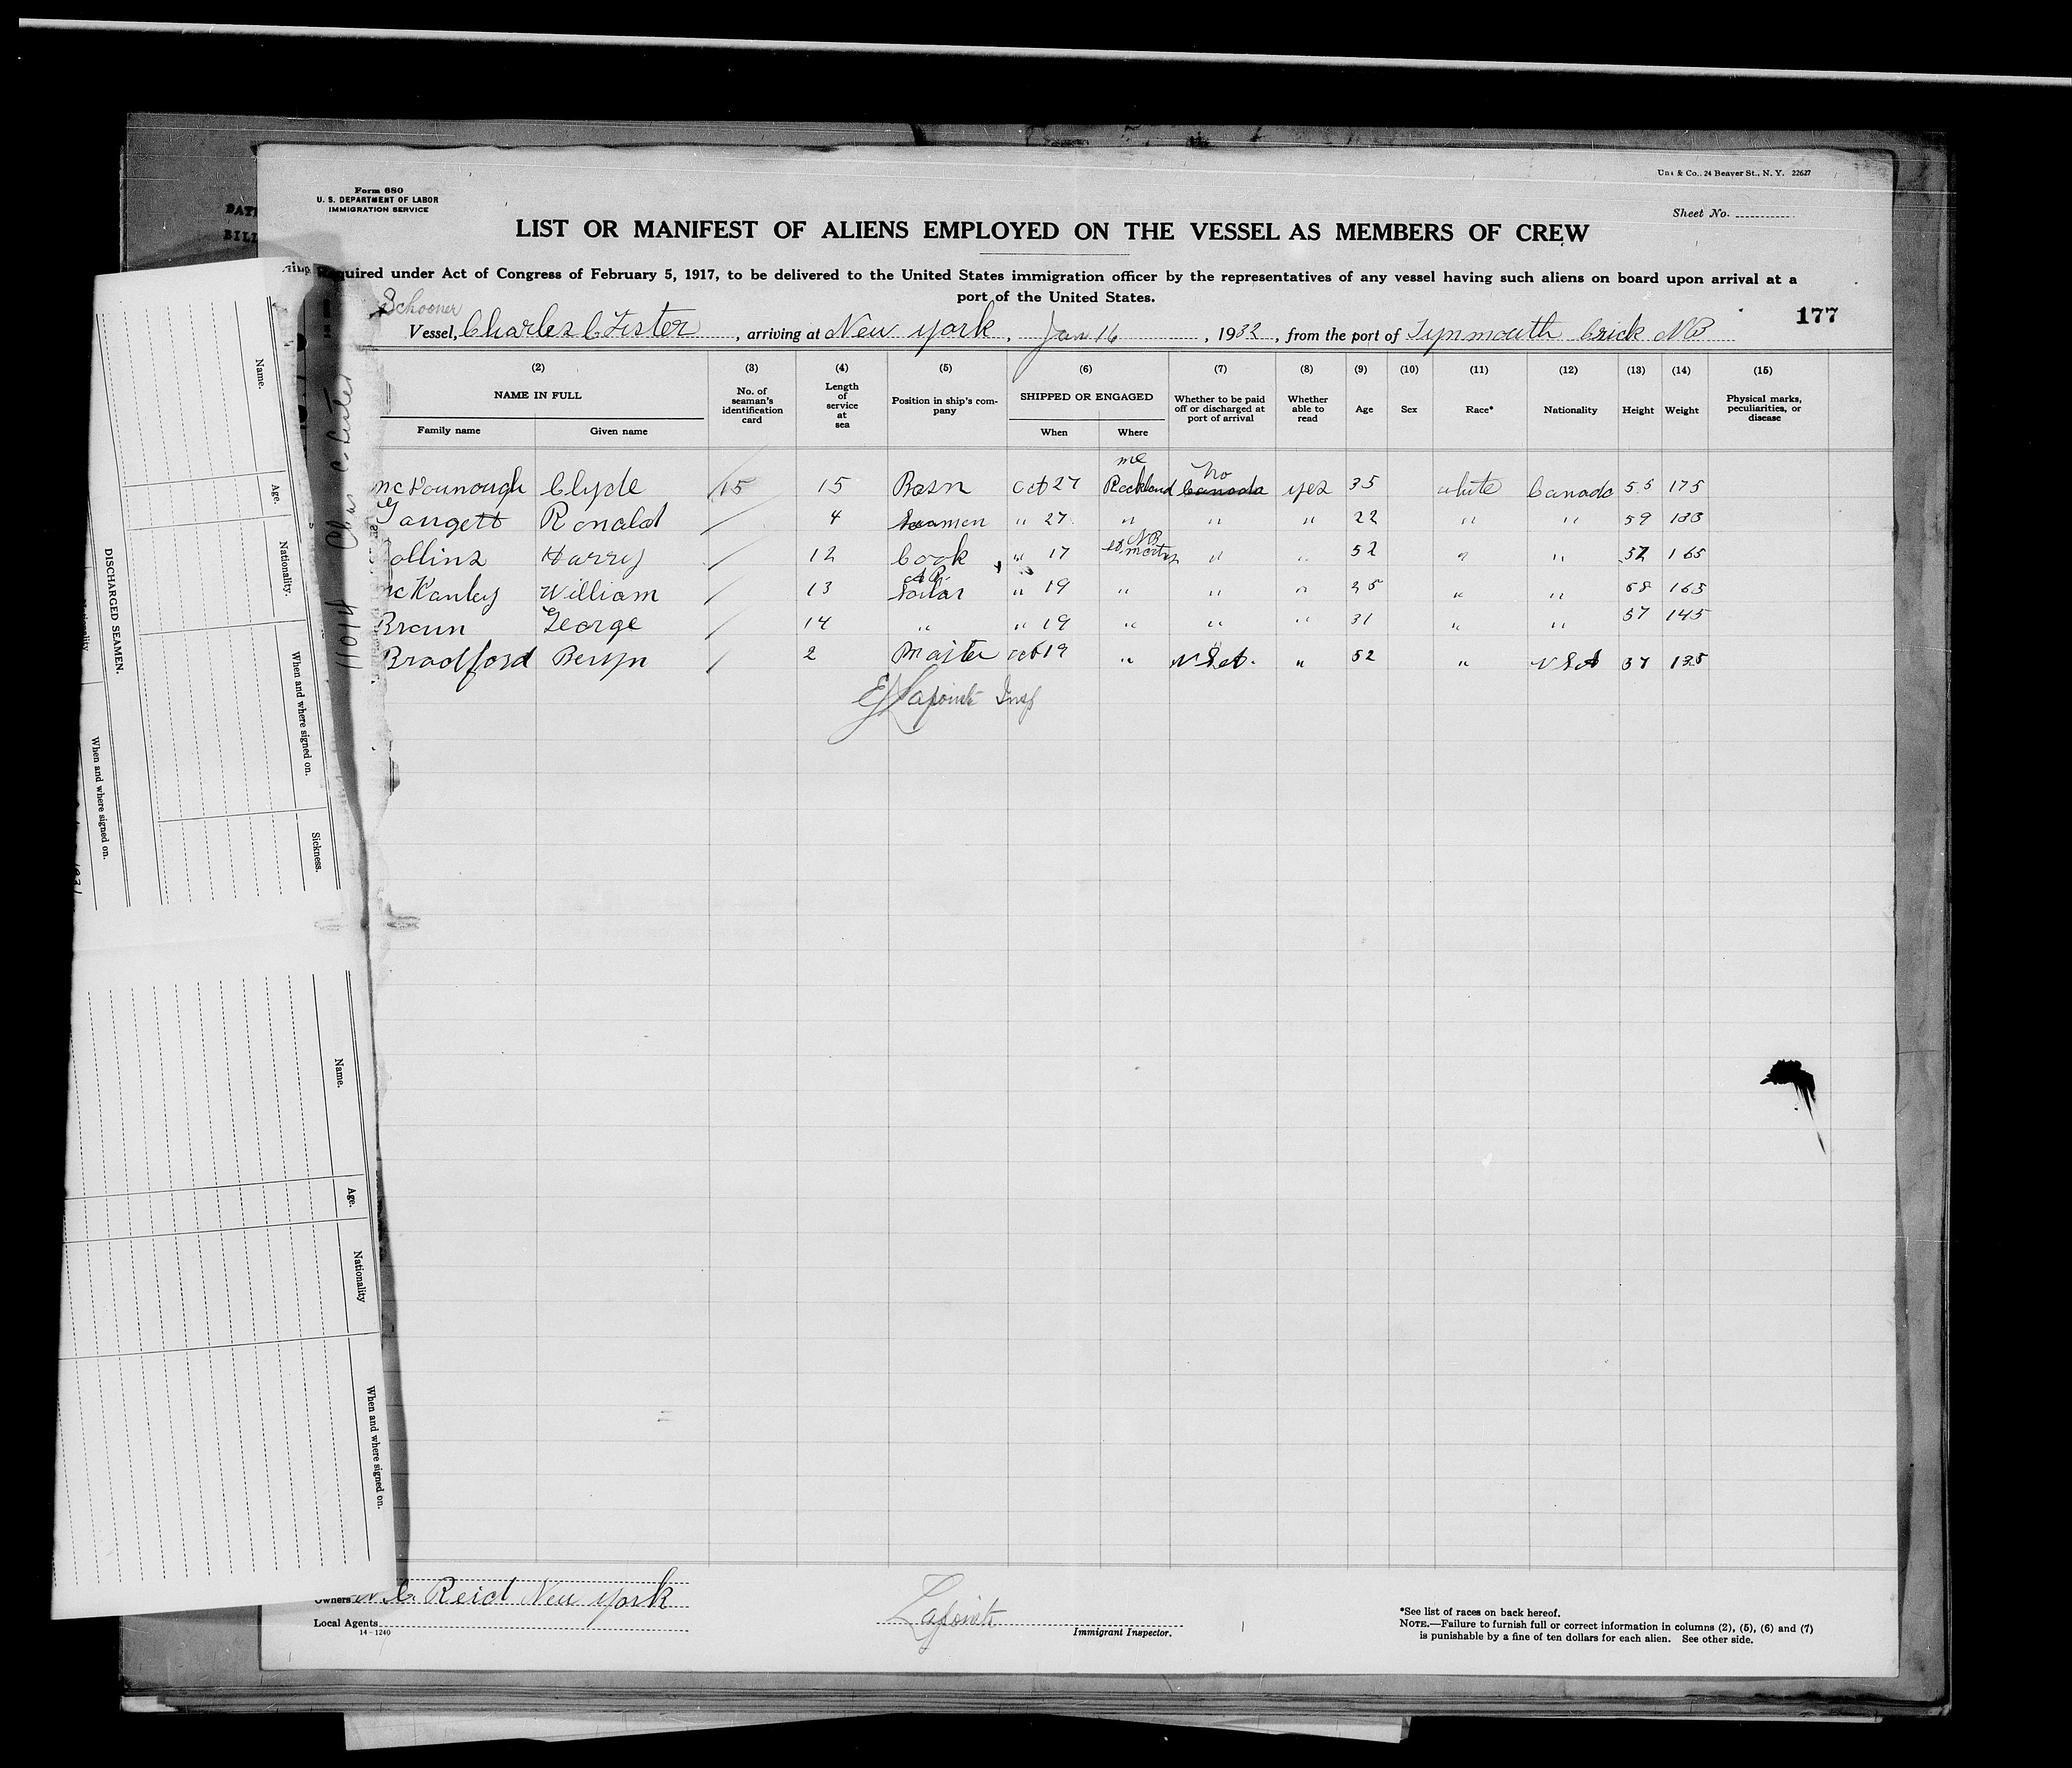 Form 680
U. S. DEPARTMENT OF LABOR
IMMIGRATION SERVICE
& Co., 24 Beaver St., N. Y. 22627
Sheet No.
LIST OR MANIFEST OF ALIENS EMPLOYED ON THE VESSEL AS MEMBERS OF CREW
Required under Act of Congress of February 5, 1917, to be delivered to the United States immigration officer by the representatives of any vessel having such aliens on board upon arrival at a
port of the United States.
177
Schooner
Vessel, Charles C Lister, arriving at New York, Jan 16, 1932, from the port of Tynmouth Crick NB
(2) (3) (4) (5) (6) (7) (8) (9) (10) (11) (12) (13) (14) (15)
NAME IN FULL
Family name Given name
No. of seaman's identification card
Length of service at sea
Position in ship's company
SHIPPED OR ENGAGED
When Where
Whether to be paid off or discharged at port of arrival
Whether able to read
Age
Sex
Race*
Nationality
Height
Weight
Physical marks, peculiarities, or disease
me
no
Clyde 15 15 Bosn Oct 27 Rockland Canada yes 35 white Canada 55 175
Ronald 4 Seamen " 27 " " " 22 " " 59
NB
ollins Harry 12 Cook " 17 " " 52 " " 165
AB
McKanley William 13 Sailor " 19 " " " " " 58 165
Brown George 14 " " 19 " " " 31 " " 57 145
Bradford 2 Master Oct 19 " " 52 " 57 135
EJ Lapointe Insp
Owners N. C. Reid New York
Local Agents
14-1240
Lapointe
Immigrant Inspector.
*See list of races on back hereof.
NOTE.—Failure to furnish full or correct information in columns (2), (5), (6) and (7)
is punishable by a fine of ten dollars for each alien. See other side.
Name.
Age.
Nationality.
When and where signed on.
Sickness.
DISCHARGED SEAMEN.
Nationality
When and where signed on.
Name.
Age.
Nationality
When and where signed on.
11014